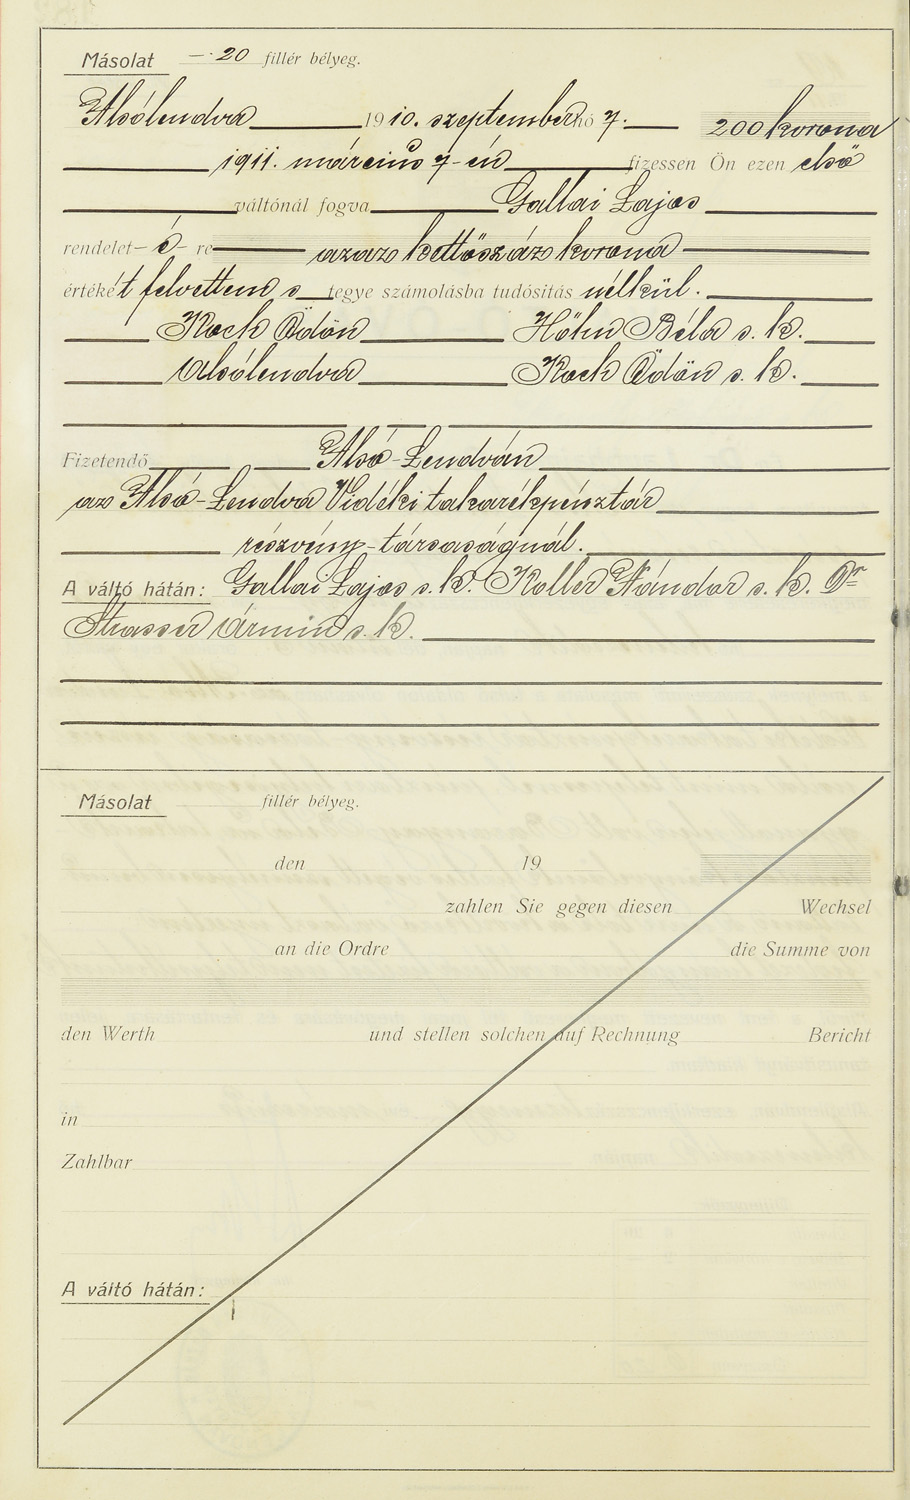 Másolat —·20 fillér bélyeg.
Alsólendva 1910. szeptember hó 7. 200 korona
1911. március 7-én fizessen Ön ezen első
váltónál fogva Gallai Lajos
rendelet-é-re azaz kettőszáz korona
értékét felvettem s tegye számolásba tudósitás nélkül.
Koch Ödön Höhn Béla s. k.
Alsólendva Koch Ödön s. k.
Fizetendő Alsó-Lendván
az Alsó-Lendva Vidéki takarékpénztár
részvény-társaságnál.
A váltó hátán: Gallai Lajos s. k. Koller Nándor s. k. Dr
Strasser Ármin s. k.
Másolat fillér bélyeg.
den 19
zahlen Sie gegen diesen Wechsel
an die Ordre die Summe von
den Werth und stellen solchen auf Rechnung Bericht
in
Zahlbar
A váltó hátán: